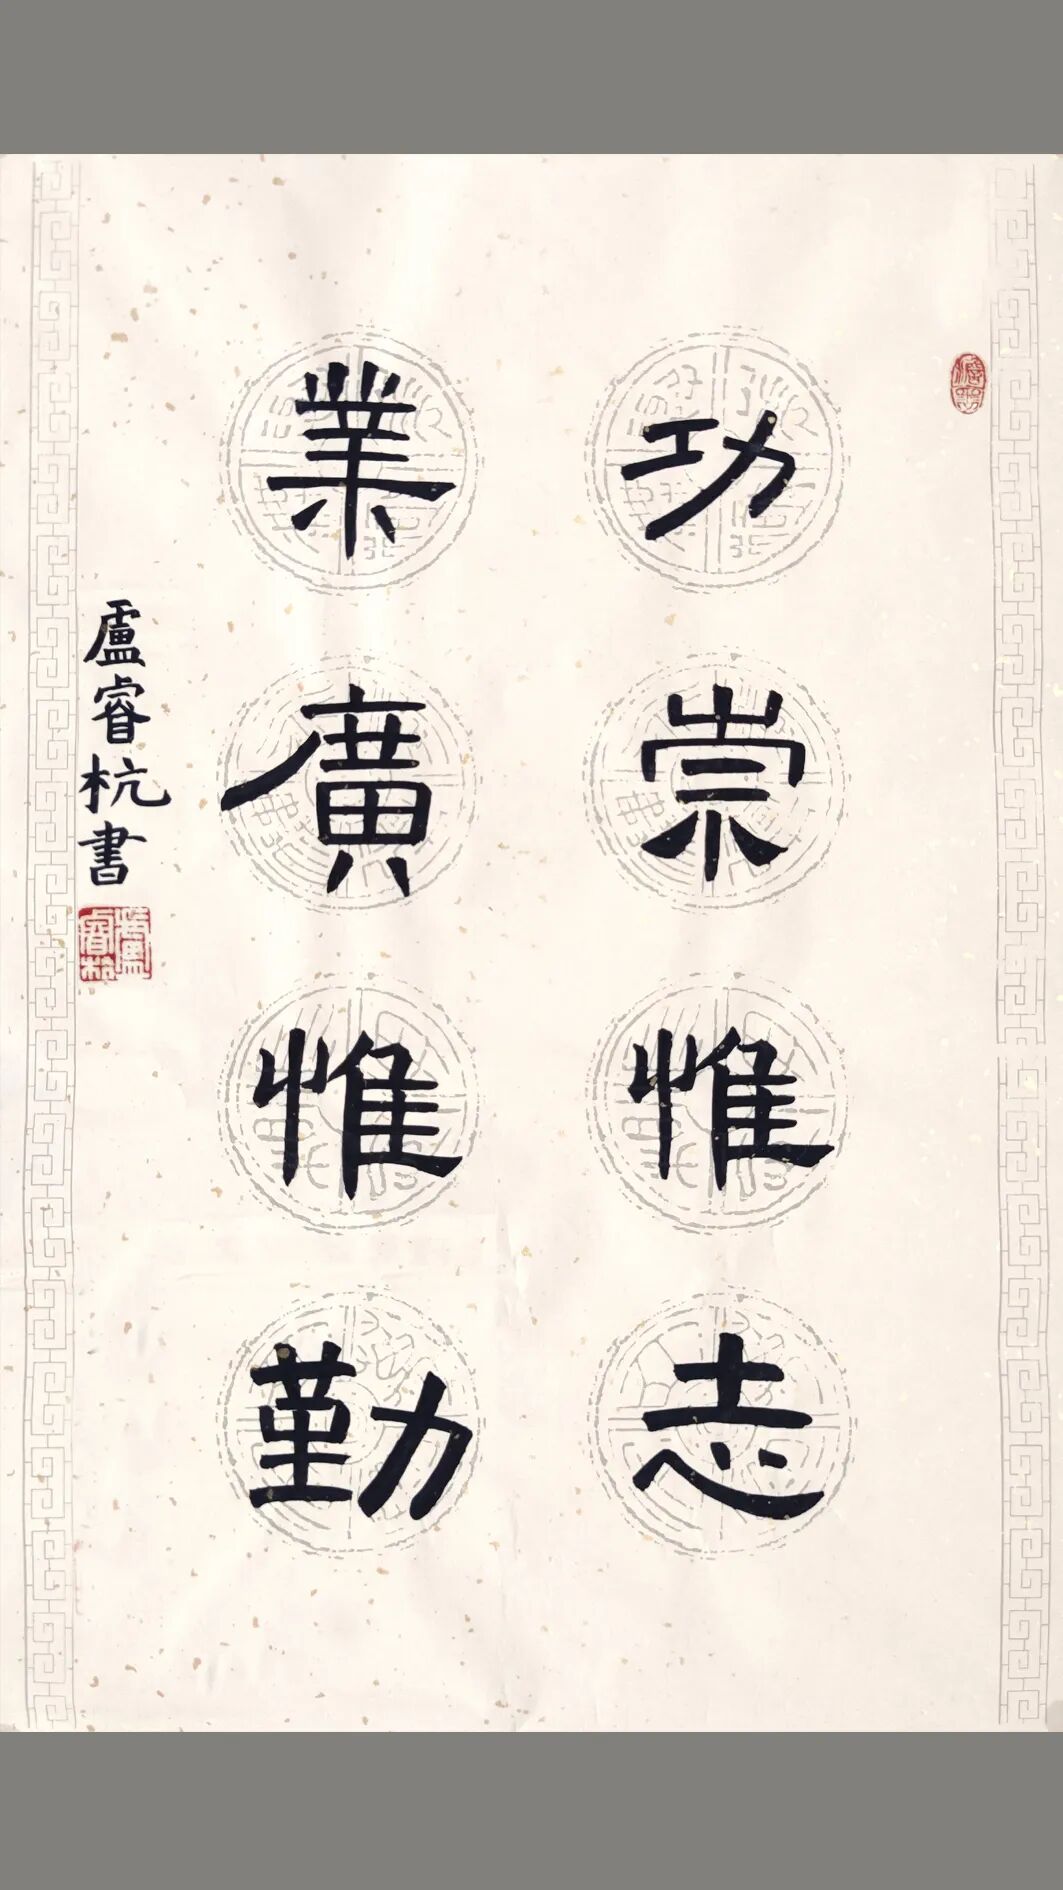 功崇惟志
業廣惟勤
盧睿杭書